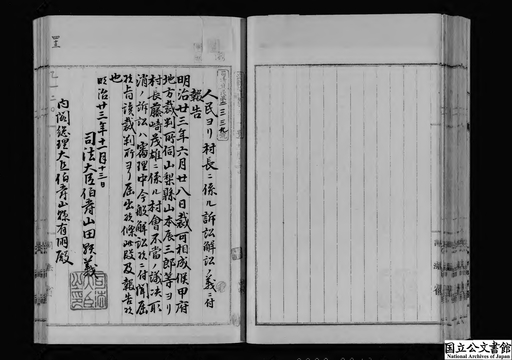 人民ヨリ村長ニ係ル訴訟解訟ノ義ニ付
報告
明治廿三年六月廿八日裁可相成候甲府
地方裁判所伺山梨縣山本辰三郎等ヨリ
村長藤崎茂雄ニ係ル村會不當ノ議決取
消ノ訴訟ハ審理中今般解訟致候ニ付聞届
候旨該裁判所ヨリ届出候條此段及報告候
也
明治廿三年十一月十三日
司法大臣伯爵山田顕義
内閣総理大臣伯爵山縣有朋殿
国立公文書館
National Archives of Japan